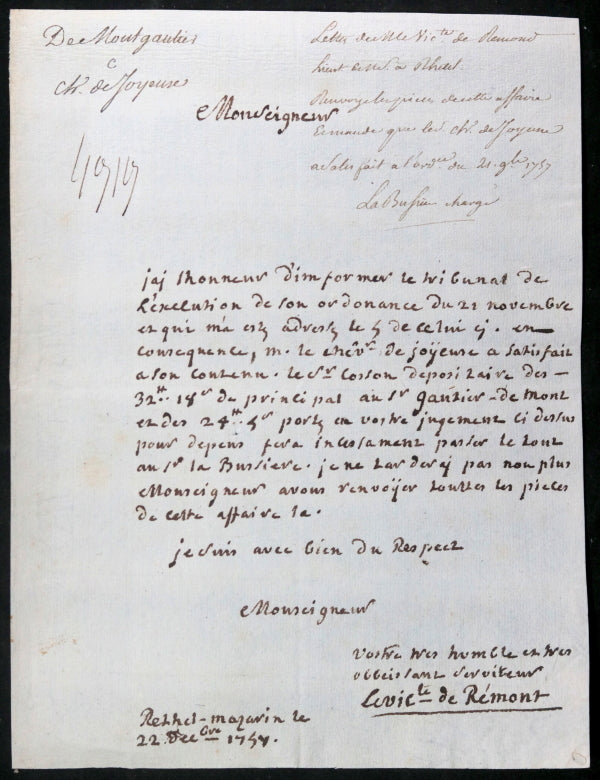 De Montgautier
c
ch. de Joyeuse
Lettre de Mr le Victe de Remond
Lieut de M. à Rhetel
Renvoye les pieces de cette affaire
Et mande que le ch. de Joyeuse
a satisfait a l'ordce du 21. 9bre 1757
La Bussiere chargé
Monseigneur
jaj lhonneur d'imformer le tribunal de
l'éxecution de son ordonance du 21 novembre
et qui m'a estez adressez le 5 de celui cj. en
consequence, m. le chevr. de joÿeuse a satisfait
a son contenu. le Sr. Cosson depositaire des
32tt. 18s de principal au Sr gautier-de mont
et des 24tt. 5s portez en vostre jugement ci dessus
pour depens fera incessament passer le tout
au Sr la Bussiere. je ne tarderaj pas non plus
Monseigneur a vous renvoÿer touttes les pieces
de cette affaire la.
je suis avec bien du Respect
Monseigneur
vostre tres humble et tres
obbeissant serviteur
Le victe de Rémont
Rethel-mazarin le
22 decbre 1757.